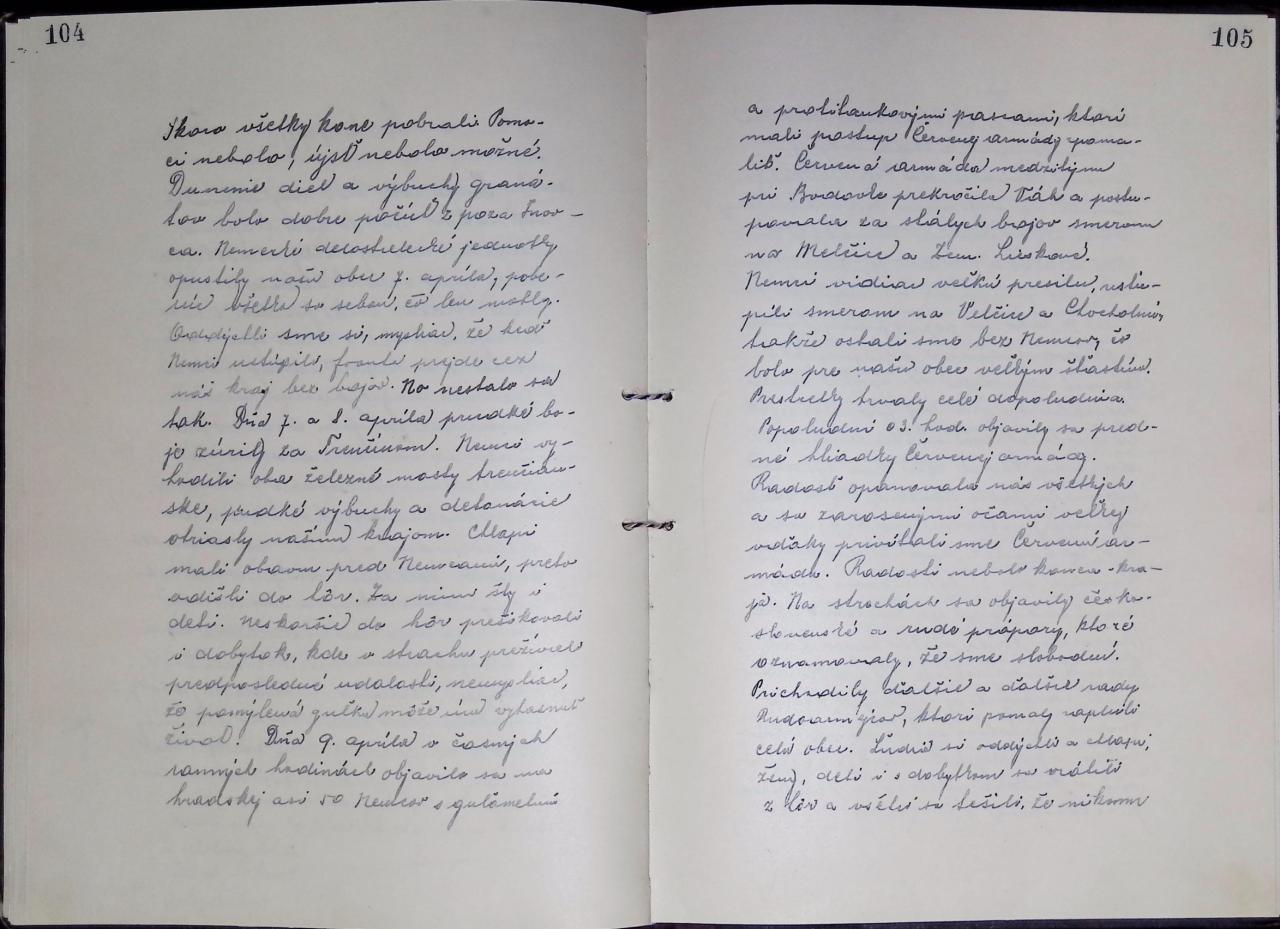 104
Skoro všetky kone pobrali. Pomo-
ci nebolo, újsť nebolo možné.
Dunenie diel a výbuchy graná-
tov bolo dobre počúť z poza Inov-
ca. Nemecké delostrelecké jednotky
opustily našu obec 7. apríla, pobe-
rúc všetko so sebou, čo len mohly.
Oddýchli sme si, mysliac, že keď
Nemci ustúpili, fronta prejde cez
náš kraj bez bojov. No nestalo sa
tak. Dňa 7. a 8. apríla prudké bo-
je zúrily za Trenčínom. Nemci vy-
hodili oba železné mosty trenčian-
ske, prudké výbuchy a detonácie
otriasly našim krajom. Chlapi
mali obavu pred Nemcami, preto
odišli do hôr. Za nimi šly i
deti. Neskoršie do hôr prešikovali
i dobytok, kde v strachu prežívali
predposledné udalosti, nemysliac,
že pomýlená guľka môže im vyhasnuť
život. Dňa 9. apríla v časných
ranných hodinách objavilo sa na
hradskej asi 50 Nemcov s guľometmi
105
a protitankovými pascami, ktorí
mali postup Červenej armády spoma-
liť. Červená armáda medzitým
pri Bodovke prekročila Váh a postu-
povala za stálych bojov smerom
na Melčice a Zem. Lieskové.
Nemci vidiac veľkú presilu, ustú-
pili smerom na Velčice a Chocholnú,
takže ostali sme bez Nemcov, čo
bolo pre našu obec veľkým šťastím.
Prestrelky trvaly celé dopoludnia.
Popoludní o 3. hod. objavily sa pred-
né hliadky Červenej armády.
Radosť opanovala nás všetkých
a so zarosenými očami veľkej
vďaky privítali sme Červenú ar-
mádu. Radosti nebolo konca-kra-
ja. Na strechách sa objavily česko-
slovenské a rudé prápory, ktoré
oznamovaly, že sme slobodní.
Prichodily ďalšie a ďalšie rady
Rudoarmejcov, ktorí pomaly naplnili
celú obec. Ľudia si oddýchli a chlapi,
ženy, deti i s dobytkom sa vrátili
z hôr a všetci sa tešili, že nikomu